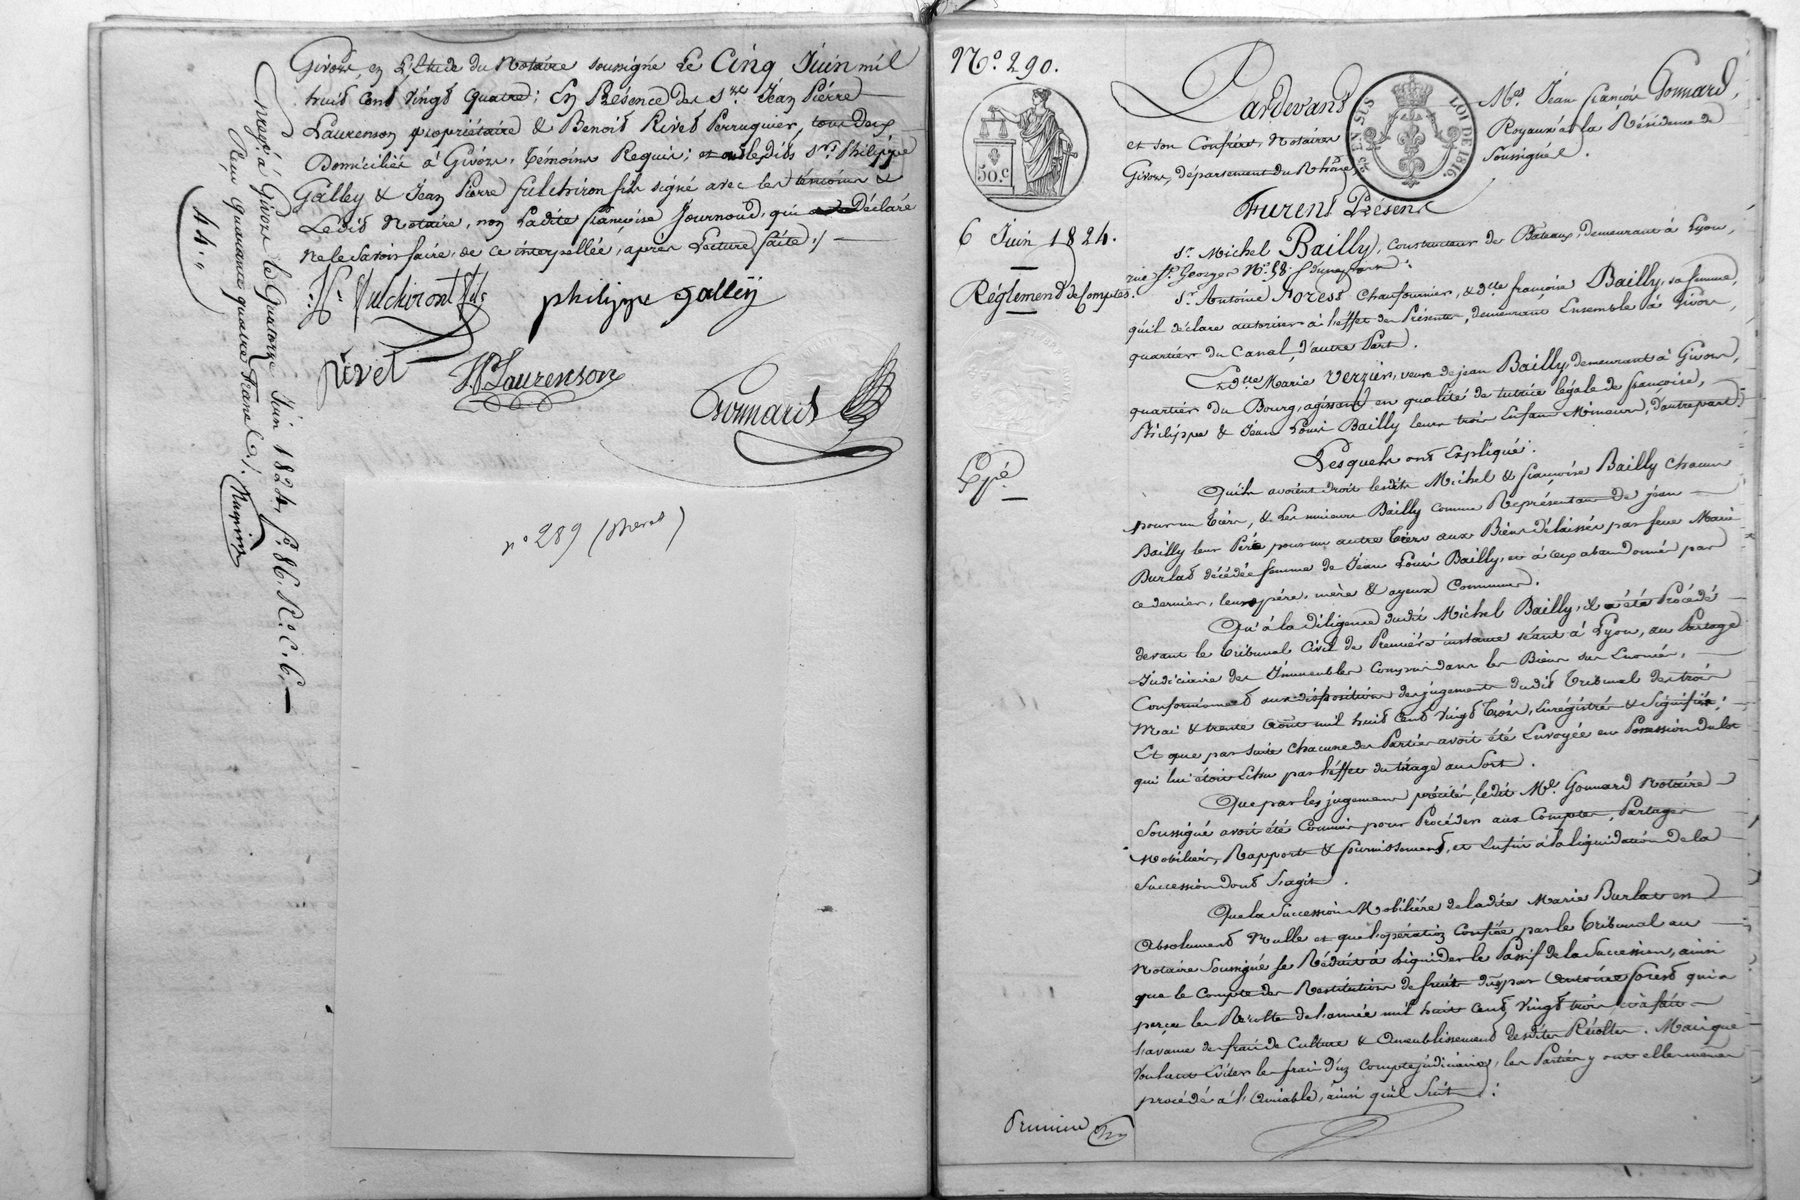 Givors, en L'Etude du Notaire soussigné Le Cinq Juin mil
huit Cent Vingt quatre; En Présence des Srs. Jean Pierre
Laurenson propriétaire & Benoit Rivet Perruquier, tous deux
Domiciliés à Givors, témoins Requis; et ont lesdits Srs. Philippe
Galley & Jean Pierre fulchiron fils signé avec les témoins &
Ledit Notaire, non Ladite françoise Journoud, qui a Déclaré
ne le Savoir faire, de ce interpellée, après Lecture faite ./.
Fulchiront fils
philippe galley
Rivet
JP Laurenson
Gonnard
Enregé. à Givors le Quatorze Juin 1824, fo. 86. Ro. C. 6.
Reçu quarante quatre francs
44.
no 289 ( )
No. 290.
50.c
6 Juin 1824.
Réglement de Comptes.
Expé
Pardevant Me. Jean françois Gonnard,
et son Confrère, Notaires Royaux à la Résidence de
Givors, département du Rhône, Soussignés.
EN SUS
LOI DE 1816
Furent Présens
Sr. Michel Bailly, Constructeur de Bateaux, demeurant à Lyon,
rue St. Georges No. 58, d'une part;
Sr. Antoine Forest Chaufournier, & dlle françoise Bailly, sa femme,
qu'il déclare autoriser à l'effet des Présentes, demeurant Ensemble à Givors,
quartier du Canal, d'autre Part.
Et dlle Marie Verzier, veuve de jean Bailly, demeurant à Givors,
quartier du Bourg, agissant en qualité de tutrice légale de françoise,
Philippe & Jean Louis Bailly leurs trois Enfans Mineurs, d'autre part;
Lesquels ont Expliqué:
Qu'ils avoient droit lesdits Michel & françoise Bailly chacun
pour un tiers, & Les mineurs Bailly comme Représentans de jean
Bailly leur Père pour un autre tiers aux Biens délaissés par feue Marie
Burlat décédée femme de Jean Louis Bailly, et à ceux abandonnés par
ce dernier, leurs père, mère & ayeux Communs.
Qu'à la diligence dudit Michel Bailly, il a été Procédé
devant le tribunal Civil de Première instance séant à Lyon, au Partage
Judiciaire des Immeubles Compris dans les Biens sus Enoncés,
Conformément aux dispositions des jugements dudit tribunal des trois
Mai & trente Août mil huit Cent Vingt trois, Enrégistrés & Signifiés;
Et que par suite chacune des Parties avoit été Envoyée en Possession du lot
qui lui étoit Echu par l'éffet du tirage au Sort.
Que par les jugemens précités, ledit Me. Gonnard Notaire
Soussigné avoit été Commis pour Procéder aux Comptes, Partage
Mobilier, Rapports & fournissements, et Enfin à la liquidation de la
Succession dont S'agit.
Que la Succession Mobilière de ladite Marie Burlat est
Absolument Nulle et que l'opération Confiée par le tribunal au
Notaire Soussigné se Réduit à Liquider le Passif de la Succession, ainsi
que le Compte des Restitutions de fruits dus par Antoine forest qui a
perçu les Récoltes de l'année mil huit Cent Vingt trois et à fait
l'avance des frais de Culture & Ameublissement desdites Récoltes. Mais que
Voulant Eviter les frais d'un Compte judiciaire, les Parties y ont elles mêmes
procédé à l'Amiable, ainsi qu'il Suit:
Premiere